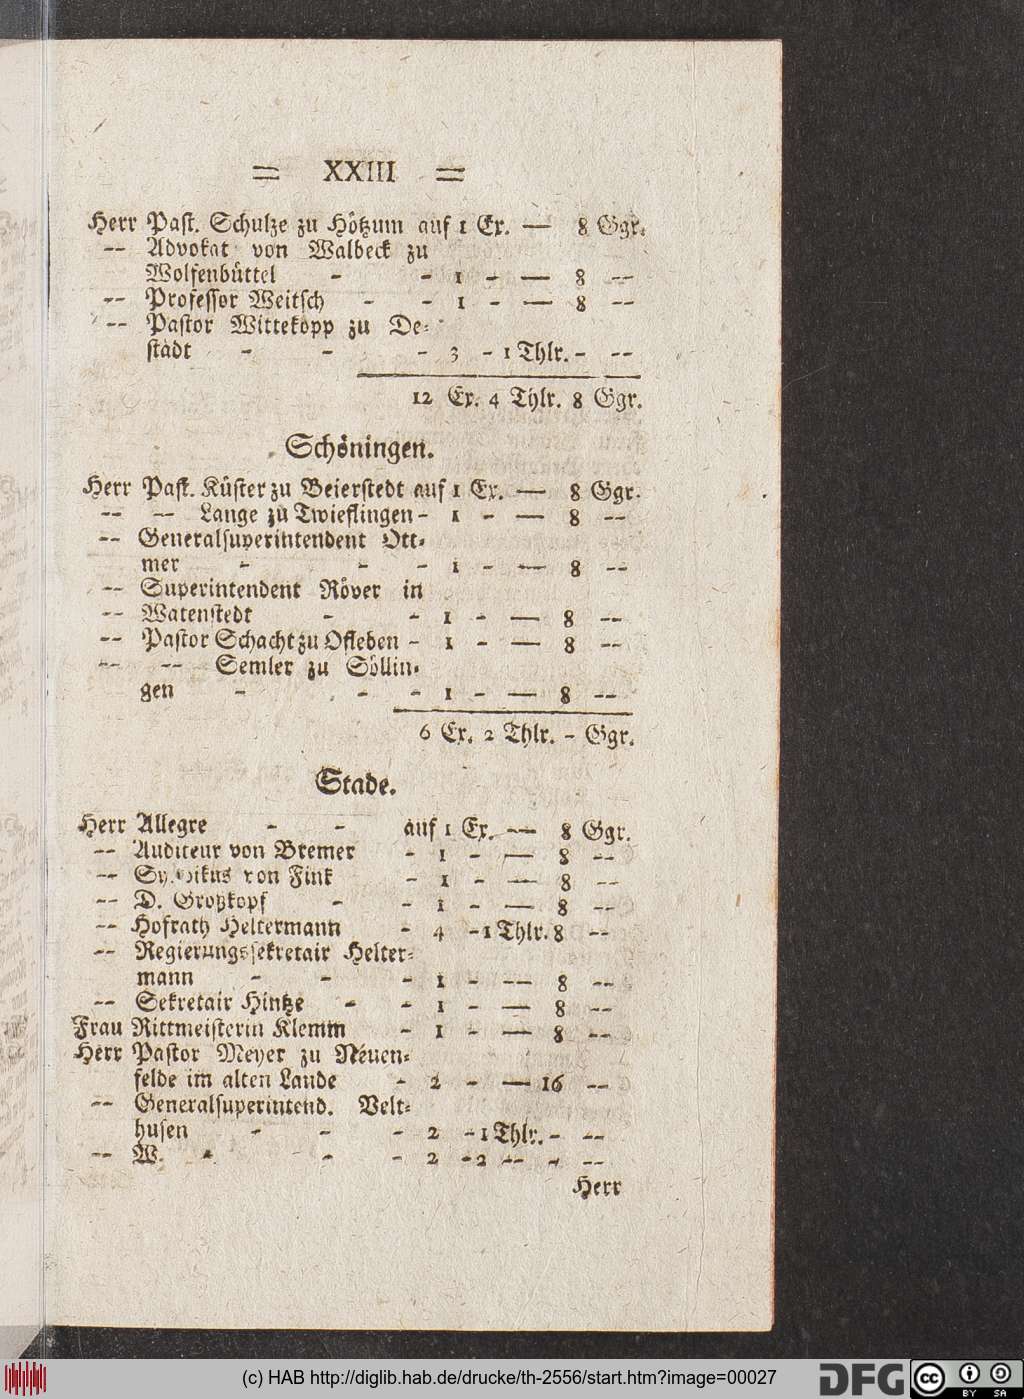 = XXIII =
Herr Past. Schulze zu Hötzum auf 1 Ex. — 8 Ggr.
-- Advokat von Walbeck zu
Wolfenbüttel - - 1 - — 8 --
-- Professor Weitsch - - 1 - — 8 --
-- Pastor Wittekopp zu De-
städt - - - 3 - 1 Thlr. - --
12 Ex. 4 Thlr. 8 Ggr.
Schöningen.
Herr Past. Küster zu Beierstedt auf 1 Ex. — 8 Ggr.
-- -- Lange zu Twieflingen - 1 - — 8 --
-- Generalsuperintendent Ott-
mer - - - 1 - — 8 --
-- Superintendent Röver in
-- Watenstedt - - 1 - — 8 --
-- Pastor Schacht zu Ofleben - 1 - — 8 --
-- -- Semler zu Söllin-
gen - - - 1 - — 8 --
6 Ex. 2 Thlr. - Ggr.
Stade.
Herr Allegre - - auf 1 Ex. — 8 Ggr.
-- Auditeur von Bremer - 1 - — 8 --
-- Syndikus von Fink - 1 - — 8 --
-- D. Großkopf - - 1 - — 8 --
-- Hofrath Heltermann - 4 - 1 Thlr. 8 --
-- Regierungssekretair Helter-
mann - - - 1 - -- 8 --
-- Sekretair Hintze - - 1 - — 8 --
Frau Rittmeisterin Klemm - 1 - — 8 --
Herr Pastor Meyer zu Neuen-
felde im alten Lande - 2 - — 16 --
-- Generalsuperintend. Velt-
husen - - - 2 - 1 Thlr. - --
-- W. - - - 2 - 2 -- - --
Herr
(c) HAB http://diglib.hab.de/drucke/th-2556/start.htm?image=00027
DFG
cc BY SA